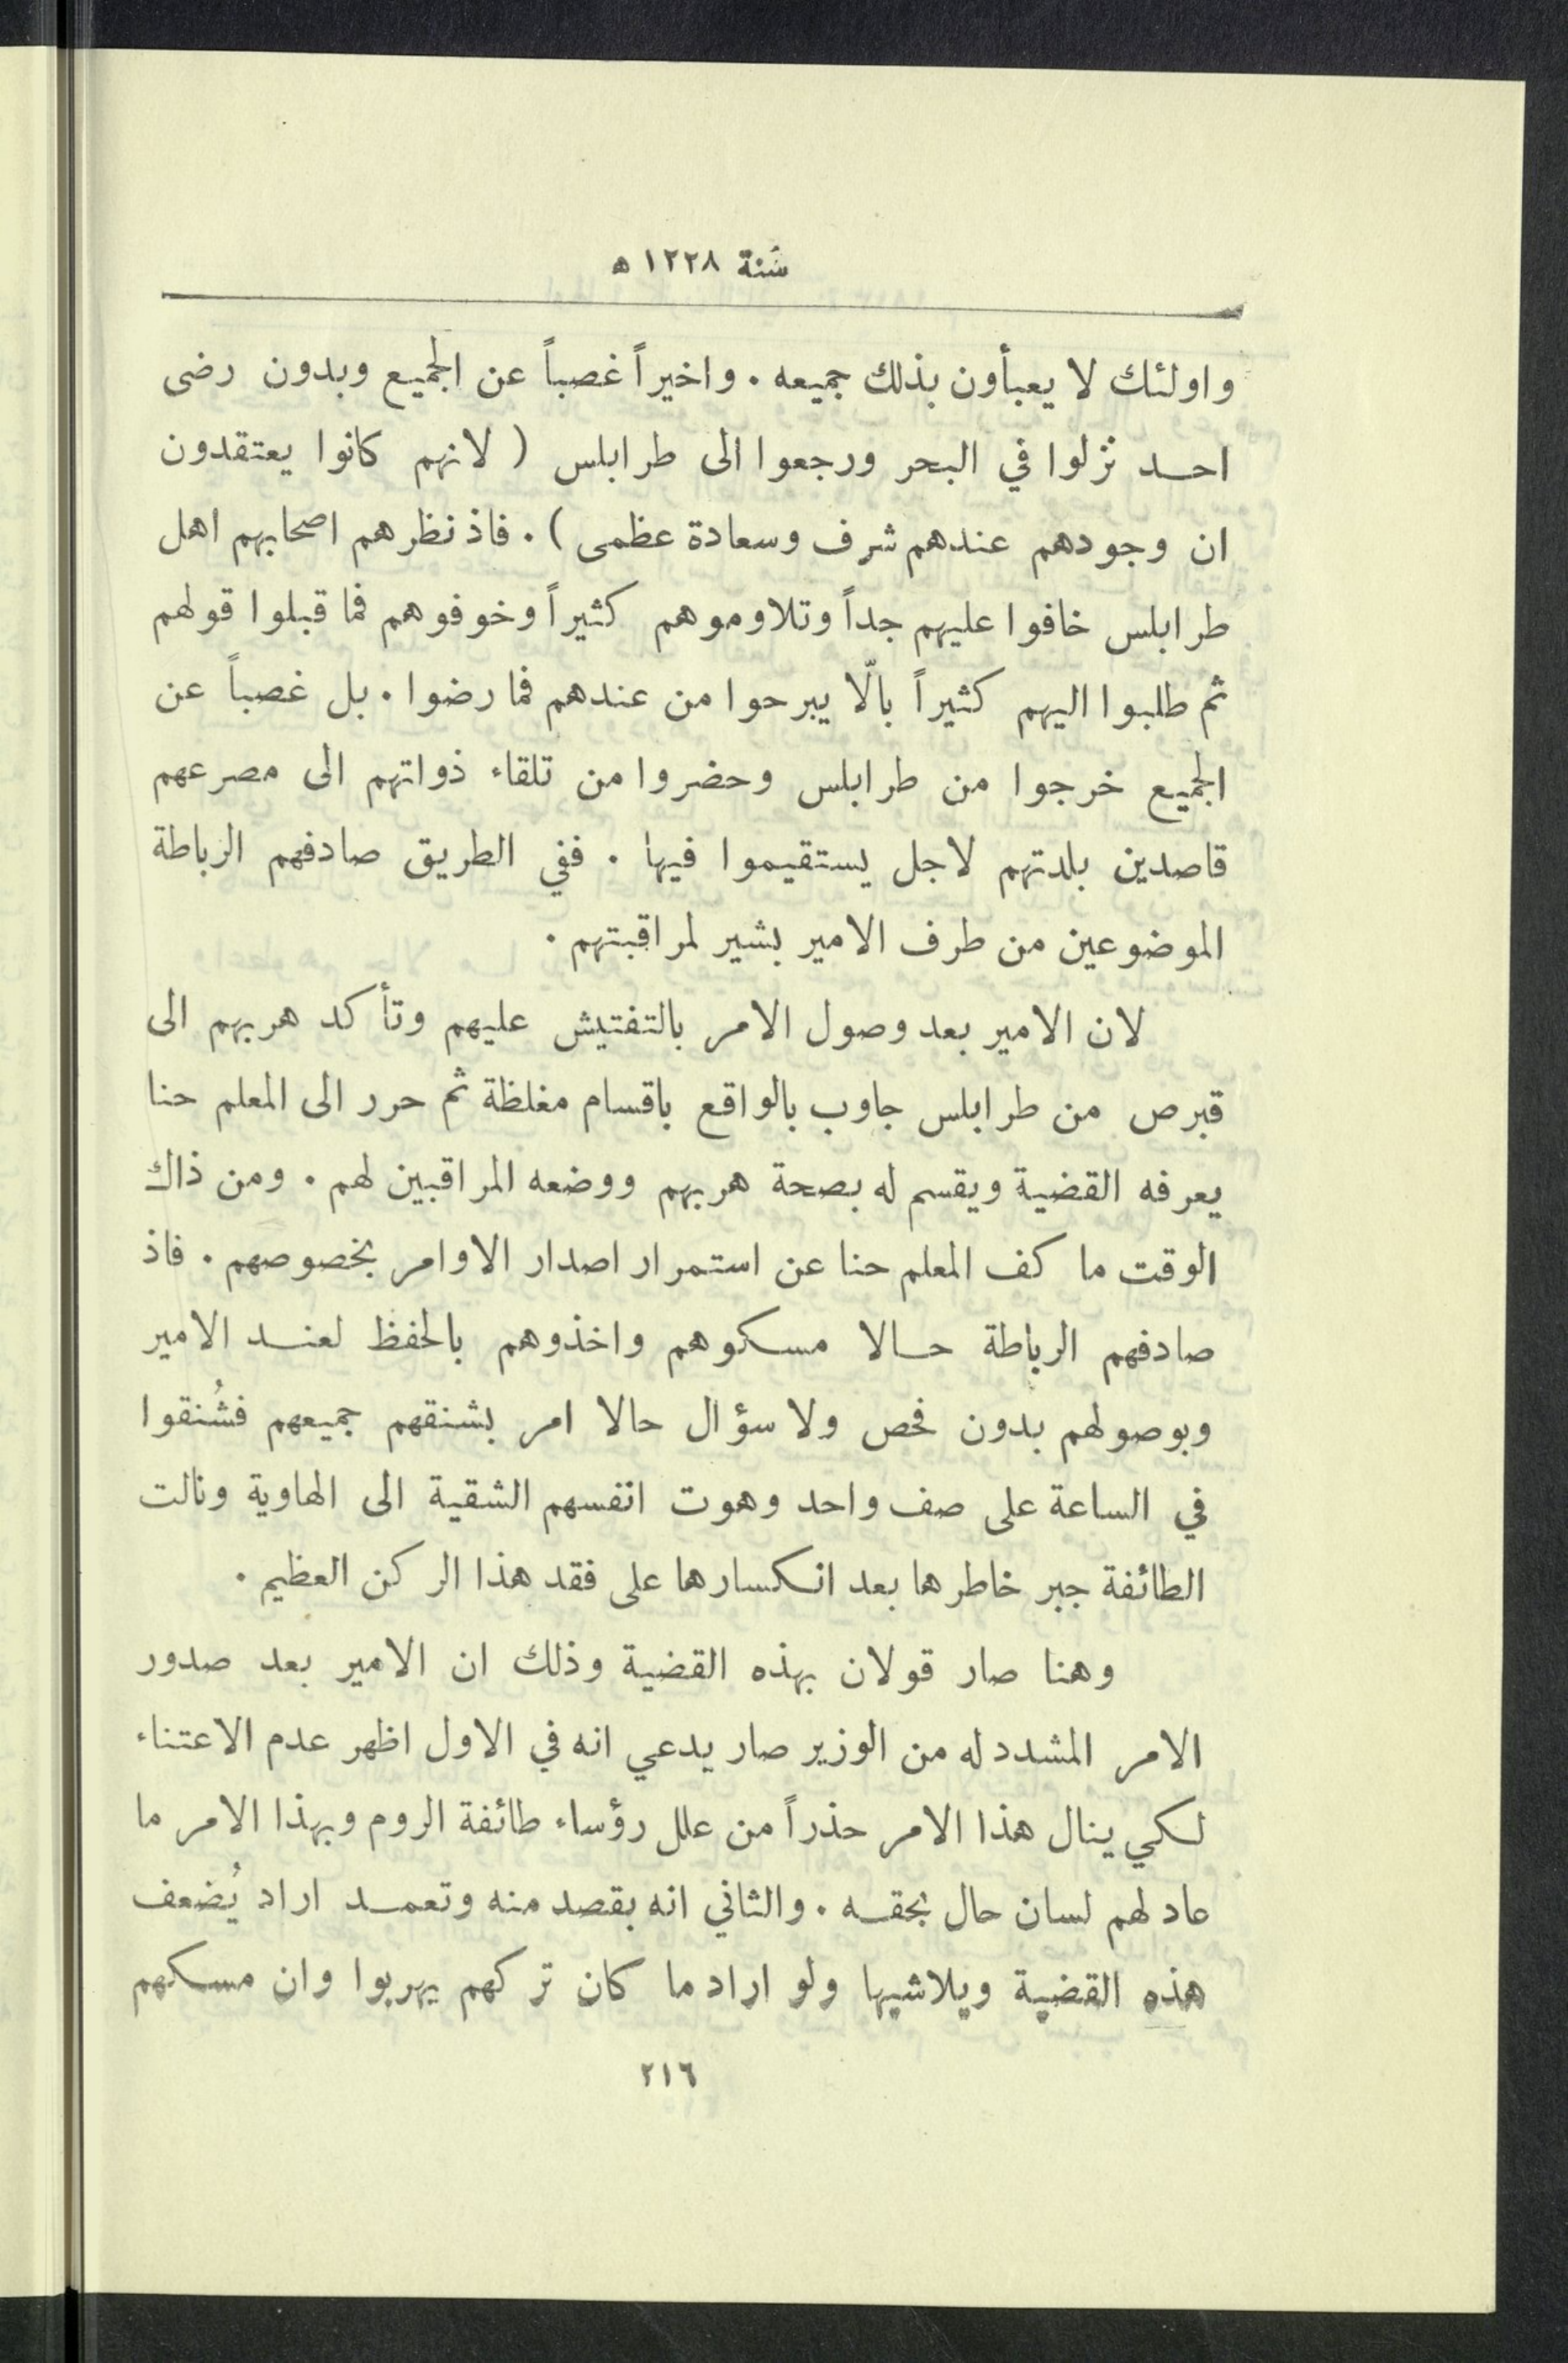 سنة ١٢٢٨ ه
واولئك لا يعبأون بذلك جميعه . واخيراً غصباً عن الجميع وبدون رضى
احد نزلوا في البحر ورجعوا الى طرابلس ( لانهم كانوا يعتقدون
ان وجودهم عندهم شرف وسعادة عظمى ) . فاذ نظرهم اصحابهم اهل
طرابلس خافوا عليهم جداً وتلاوموهم كثيراً وخوفوهم فما قبلوا قولهم
ثم طلبوا اليهم كثيراً بالّا يبرحوا من عندهم فما رضوا . بل غصباً عن
الجميع خرجوا من طرابلس وحضروا من تلقاء ذواتهم الى مصرعهم
قاصدين بلدتهم لاجل يستقيموا فيها . ففي الطريق صادفهم الرباطة
الموضوعين من طرف الامير بشير لمراقبتهم .
لان الامير بعد وصول الامر بالتفتيش عليهم وتأكد هربهم الى
قبرص من طرابلس جاوب بالواقع باقسام مغلظة ثم حرر الى المعلم حنا
يعرفه القضية ويقسم له بصحة هربهم ووضعه المراقبين لهم . ومن ذاك
الوقت ما كف المعلم حنا عن استمرار اصدار الاوامر بخصوصهم . فاذ
صادفهم الرباطة حالا مسكوهم واخذوهم بالحفظ لعند الامير
وبوصولهم بدون فحص ولا سؤال حالا امر بشنقهم جميعهم فشُنقوا
في الساعة على صف واحد وهوت انفسهم الشقية الى الهاوية ونالت
الطائفة جبر خاطرها بعد انكسارها على فقد هذا الركن العظيم .
وهنا صار قولان بهذه القضية وذلك ان الامير بعد صدور
الامر المشدد له من الوزير صار يدعي انه في الاول اظهر عدم الاعتناء
لكي ينال هذا الامر حذراً من علل رؤساء طائفة الروم وبهذا الامر ما
عاد لهم لسان حال بحقه . والثاني انه بقصد منه وتعمد اراد يُضعف
هذه القضية ويلاشيها ولو اراد ما كان تركهم يهربوا وان مسكهم
٢١٦